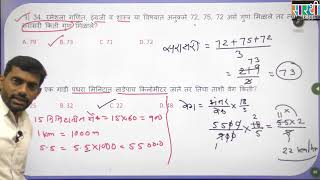 सारथी
प्र. 34. रमेशला गणित, इंग्रजी व शास्त्र या विषयात अनुक्रमे 72, 75, 72 असे गुण मिळाले तर
सरासरी किती गुण मिळाले
A. 79 B. 73 C. 71 D. 72
सरासरी = 72+75+72
3
= 73
एक गाडी पंधरा मिनिटात साडेपाच किलोमीटर जाते तर तिचा ताशी वेग किती?
B. 32 C. 22 D. 48
15 मिनिटांचे सेकंद = 15×60 = 900
1 km = 1000 m
5.5 = 5.5×1000 = 5500
वेग = अंतर × 18
5
5500 × 18
900 5
= 55×2
5
22 km/hr